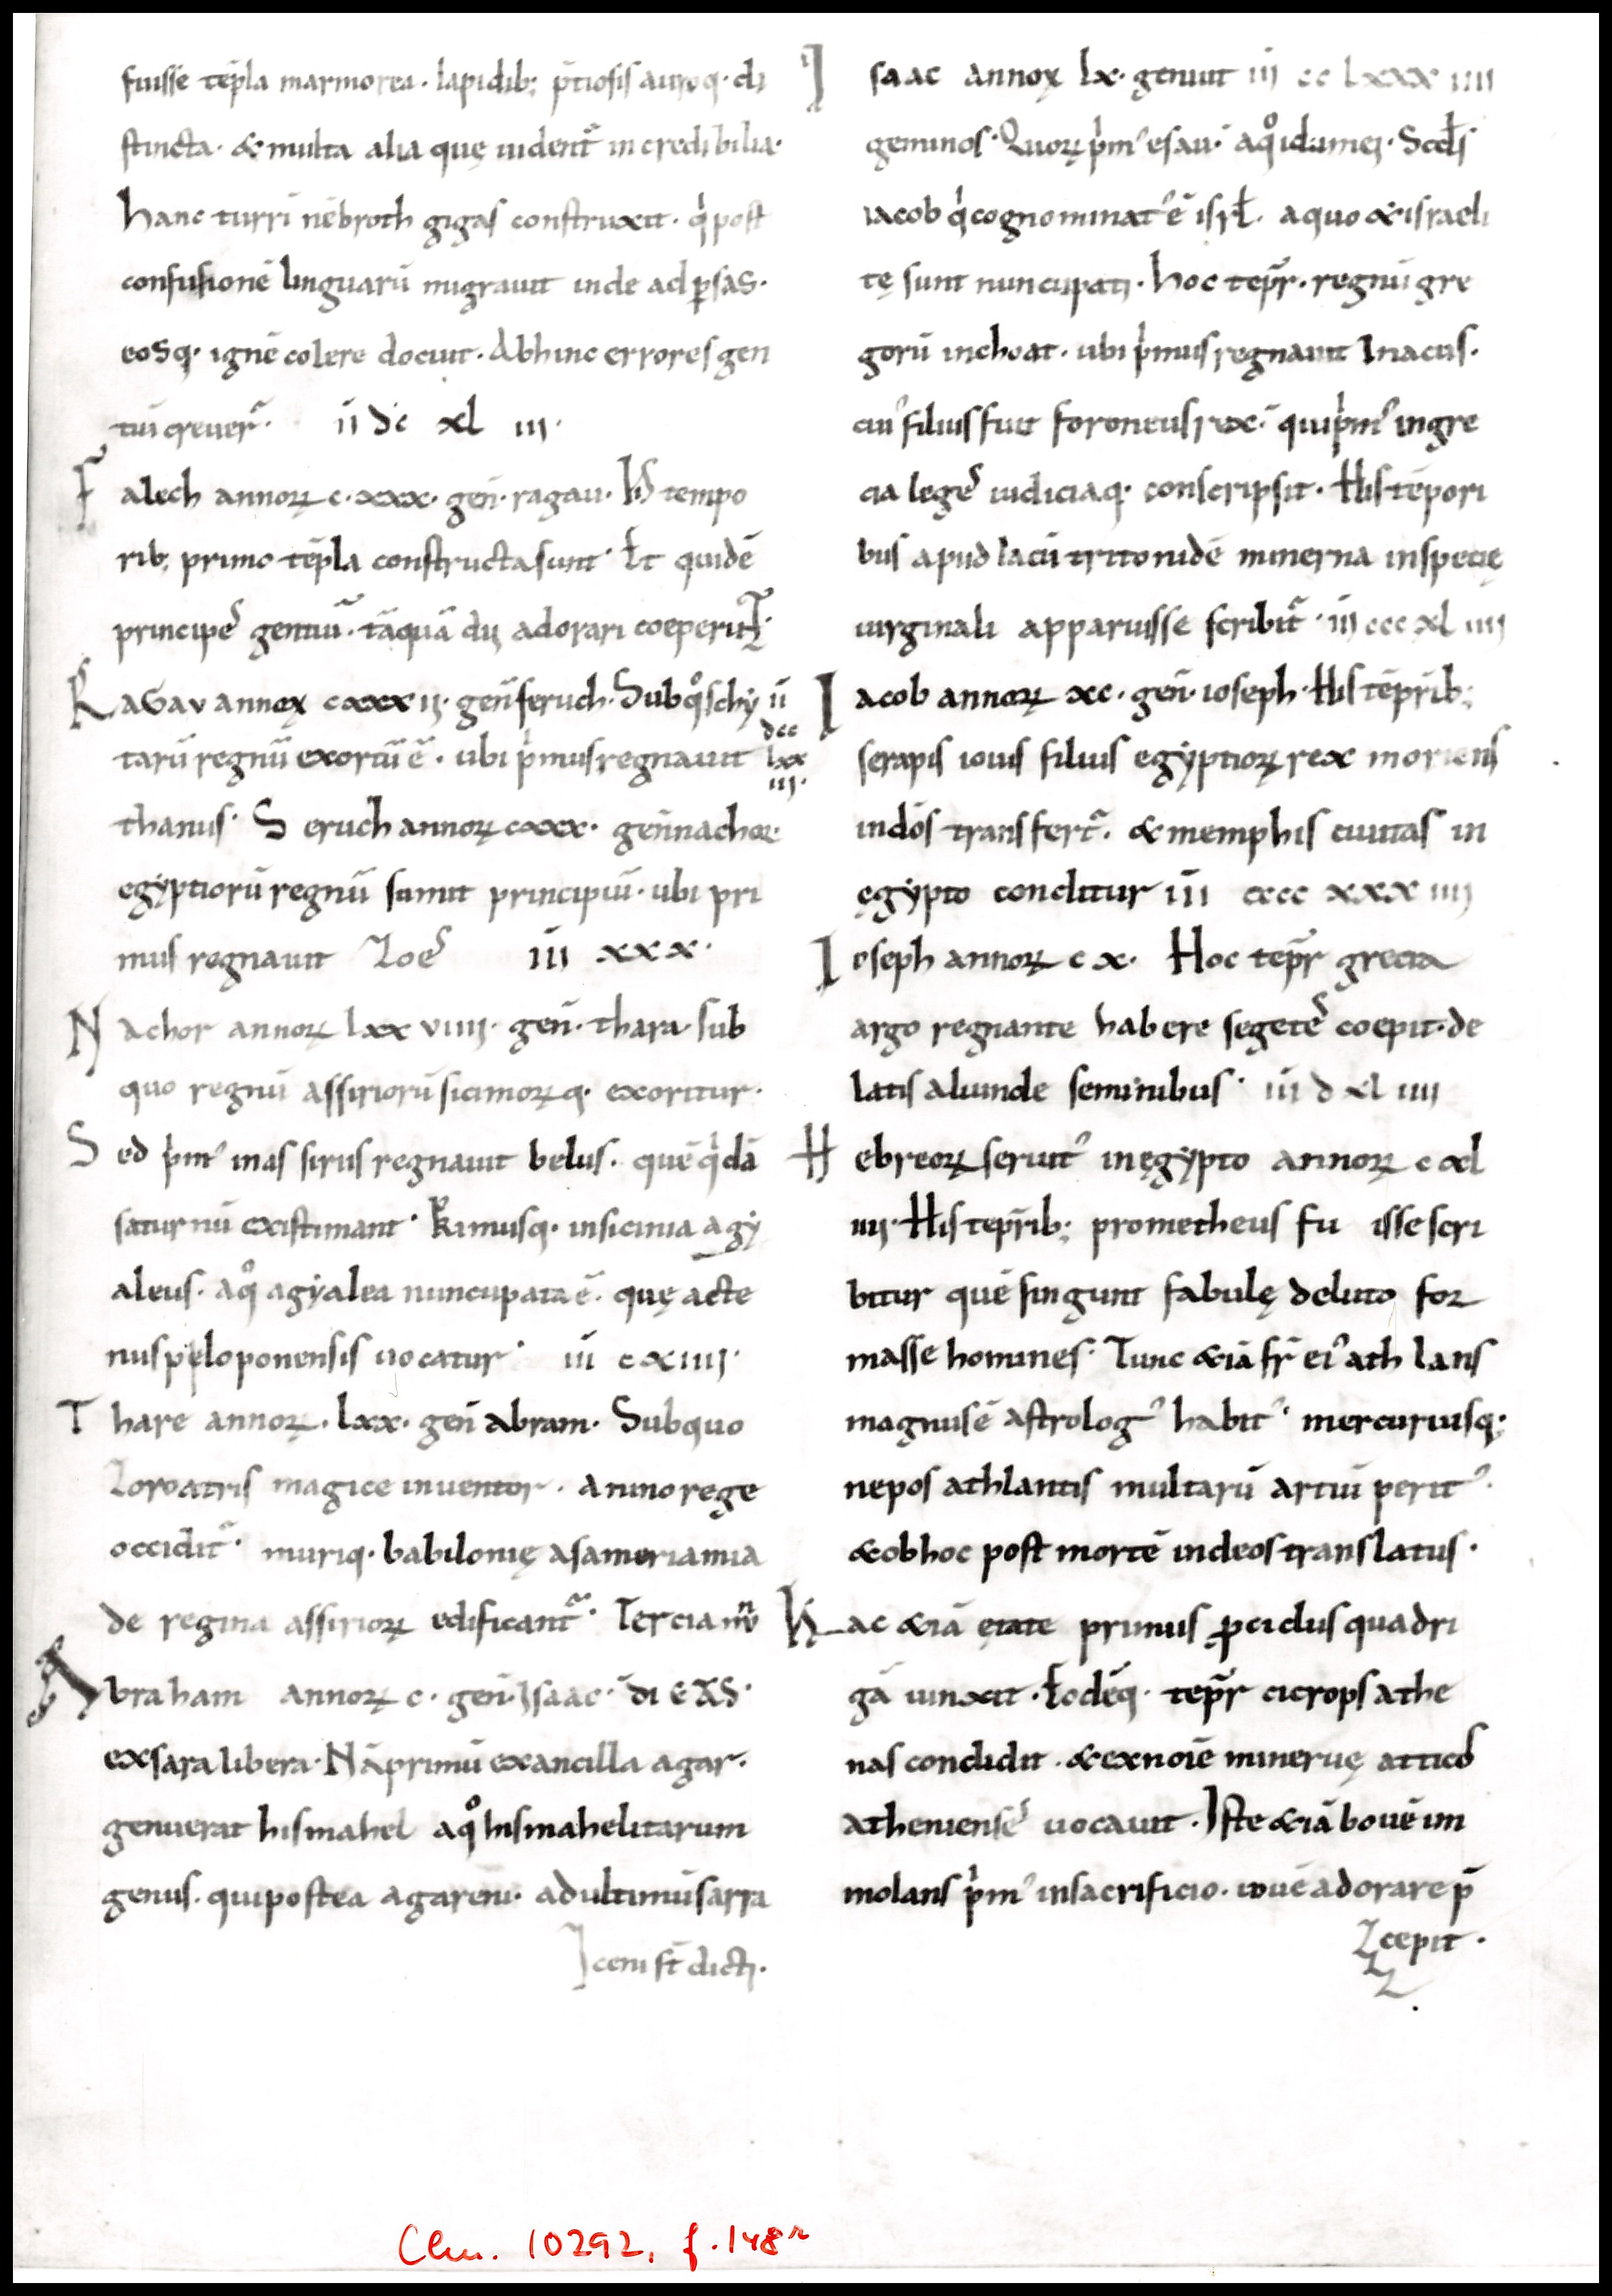 fuisse tēpla marmorea · lapidib; p̄tiosis auroq · di
stincta · & multa alia quę uident᷑ incredibilia ·
hanc turrī nēbroth gigas construxit · q̍ post
confusionē linguarū migrauit inde ad ꝑsas ·
eosq · ignē colere docuit · Abhinc errores gen
tiū creuer᷑ · īī dc xl iii ·
F alech annoꝝ c · xxx · geñ · ragau · His tempo
rib; primo tēpla constructa sunt · Et quidē
principes gentiū · tāquā dij adorari coeperūt ·
R agav annoꝝ cxxxij · geñ seruch · Sub q° schy īī dcc lxx iiij ·
tarū regnū exortū ē · ubi p̍mus regnauit
thanus · Seruch annoꝝ cxxx · geñ nachor ·
egẏptiorū regnū sumit principiū · ubi pri
mus regnauit Zoes īīī xxx ·
N achor annoꝝ lxxviiij · geñ · thara · sub
quo regnū assiriorū sicimoꝝq · exoritur ·
S ed p̍m᾿ in assirus regnauit belus · quē q̍dā
saturnū existimant · Primusq · in sicinia agẏ
aleus · a q° agẏalea nuncupata ē · quę acte
nus peloponensis uocatur · īīī cxiiij ·
T hare annoꝝ · lxx · geñ abram · Sub quo
Zoroatris magice inuentor · a nino rege
occidit᷑ · muriq · babilonię a sameriamia
de regina assirioꝝ edificant᷑ · Tercia
A braham annoꝝ c · geñ · Isaac · di ETAS ·
ex sara libera · Nā primū ex ancilla agar ·
genuerat hismahel a q° hismahelitarum
genus · qui postea agareni · ad ultimū sarra
ceni st̄ dicti ·
I saac annoꝝ lx · genuit īīī cc lxxx iiii
geminos · Quoꝝ p̍m᾿ esau · a q° idumei · Scds
iacob q̍ cognominat᾿ ē isrł · a quo & israeli
tę sunt nuncupati · hoc tep̄r · regnū gre
gorū inchoat · ubi p̍mus regnauit Inacus ·
cui᾿ filius fuit foroneus rex · qui p̍m᾿ in gre
cia leges iudiciaq · conscripsit · His tēpori
bus apud lacū tritonidē minerna in specię
uirginali apparuisse scribit᷑ · īīī ccc xl iiij
I acob annoꝝ xc · geñ · ioseph · His tēp̄rib;
serapis iouis filius egẏptioꝝ rex moriens
in dōs transfert᷑ · & memphis ciuitas in
ęgẏpto conditur īīī cccc xxx iiij
I oseph annoꝝ cx · Hoc tep̄r grecia
argo regnante habere segetes coepit · de
latis aliunde seminibus · īīī d xl iiii
H ebreoꝝ seruit᾿ in ęgẏpto annoꝝ c xl
iiij · His tep̄rib; prometheus fu isse scri
bitur quē fingunt fabulę de luto for
masse homines · Tunc &iā fr̄ ei᾿ athlans
magnus ē astrolog᾿ habit᾿ · mercuriusq;
nepos athlantis multarū artiū perit᾿ ·
& ob hoc post mortē in deos translatus ·
H ac &iā ętate primus ꝓciclus quadri
gā iunxit · Eodēq · tep̄r cicrops athe
nas condidit · & ex noīe mineruę atticos
athenienses uocauit · Iste &iā bouē im
molans p̍m᾿ in sacrificio · iouē adorare p̄
cepit ·
Clm. 10292, f. 148ʳ